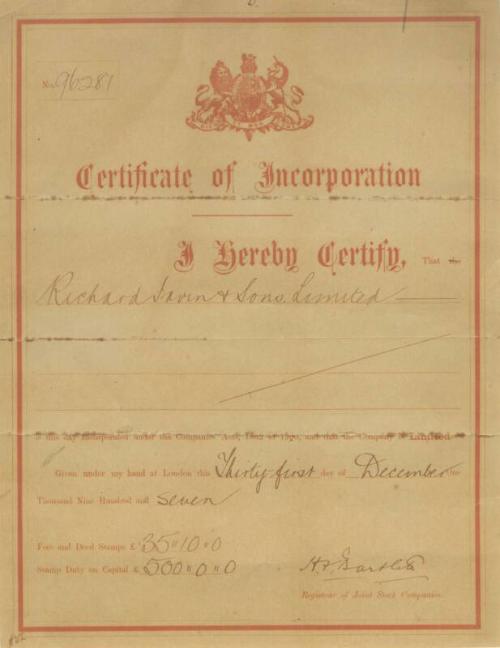 No. 96281
Certificate of Incorporation
I Hereby Certify, That the
Richard Irvin & Sons, Limited
is this day Incorporated under the Companies Acts, 1862 to 1900, and that the Company is Limited
Given under my hand at London this Thirty-first day of December One
Thousand Nine Hundred and Seven
Fees and Deed Stamps £ 35 " 10 " 0
Stamp Duty on Capital £ 500 " 0 " 0
Registrar of Joint Stock Companies.